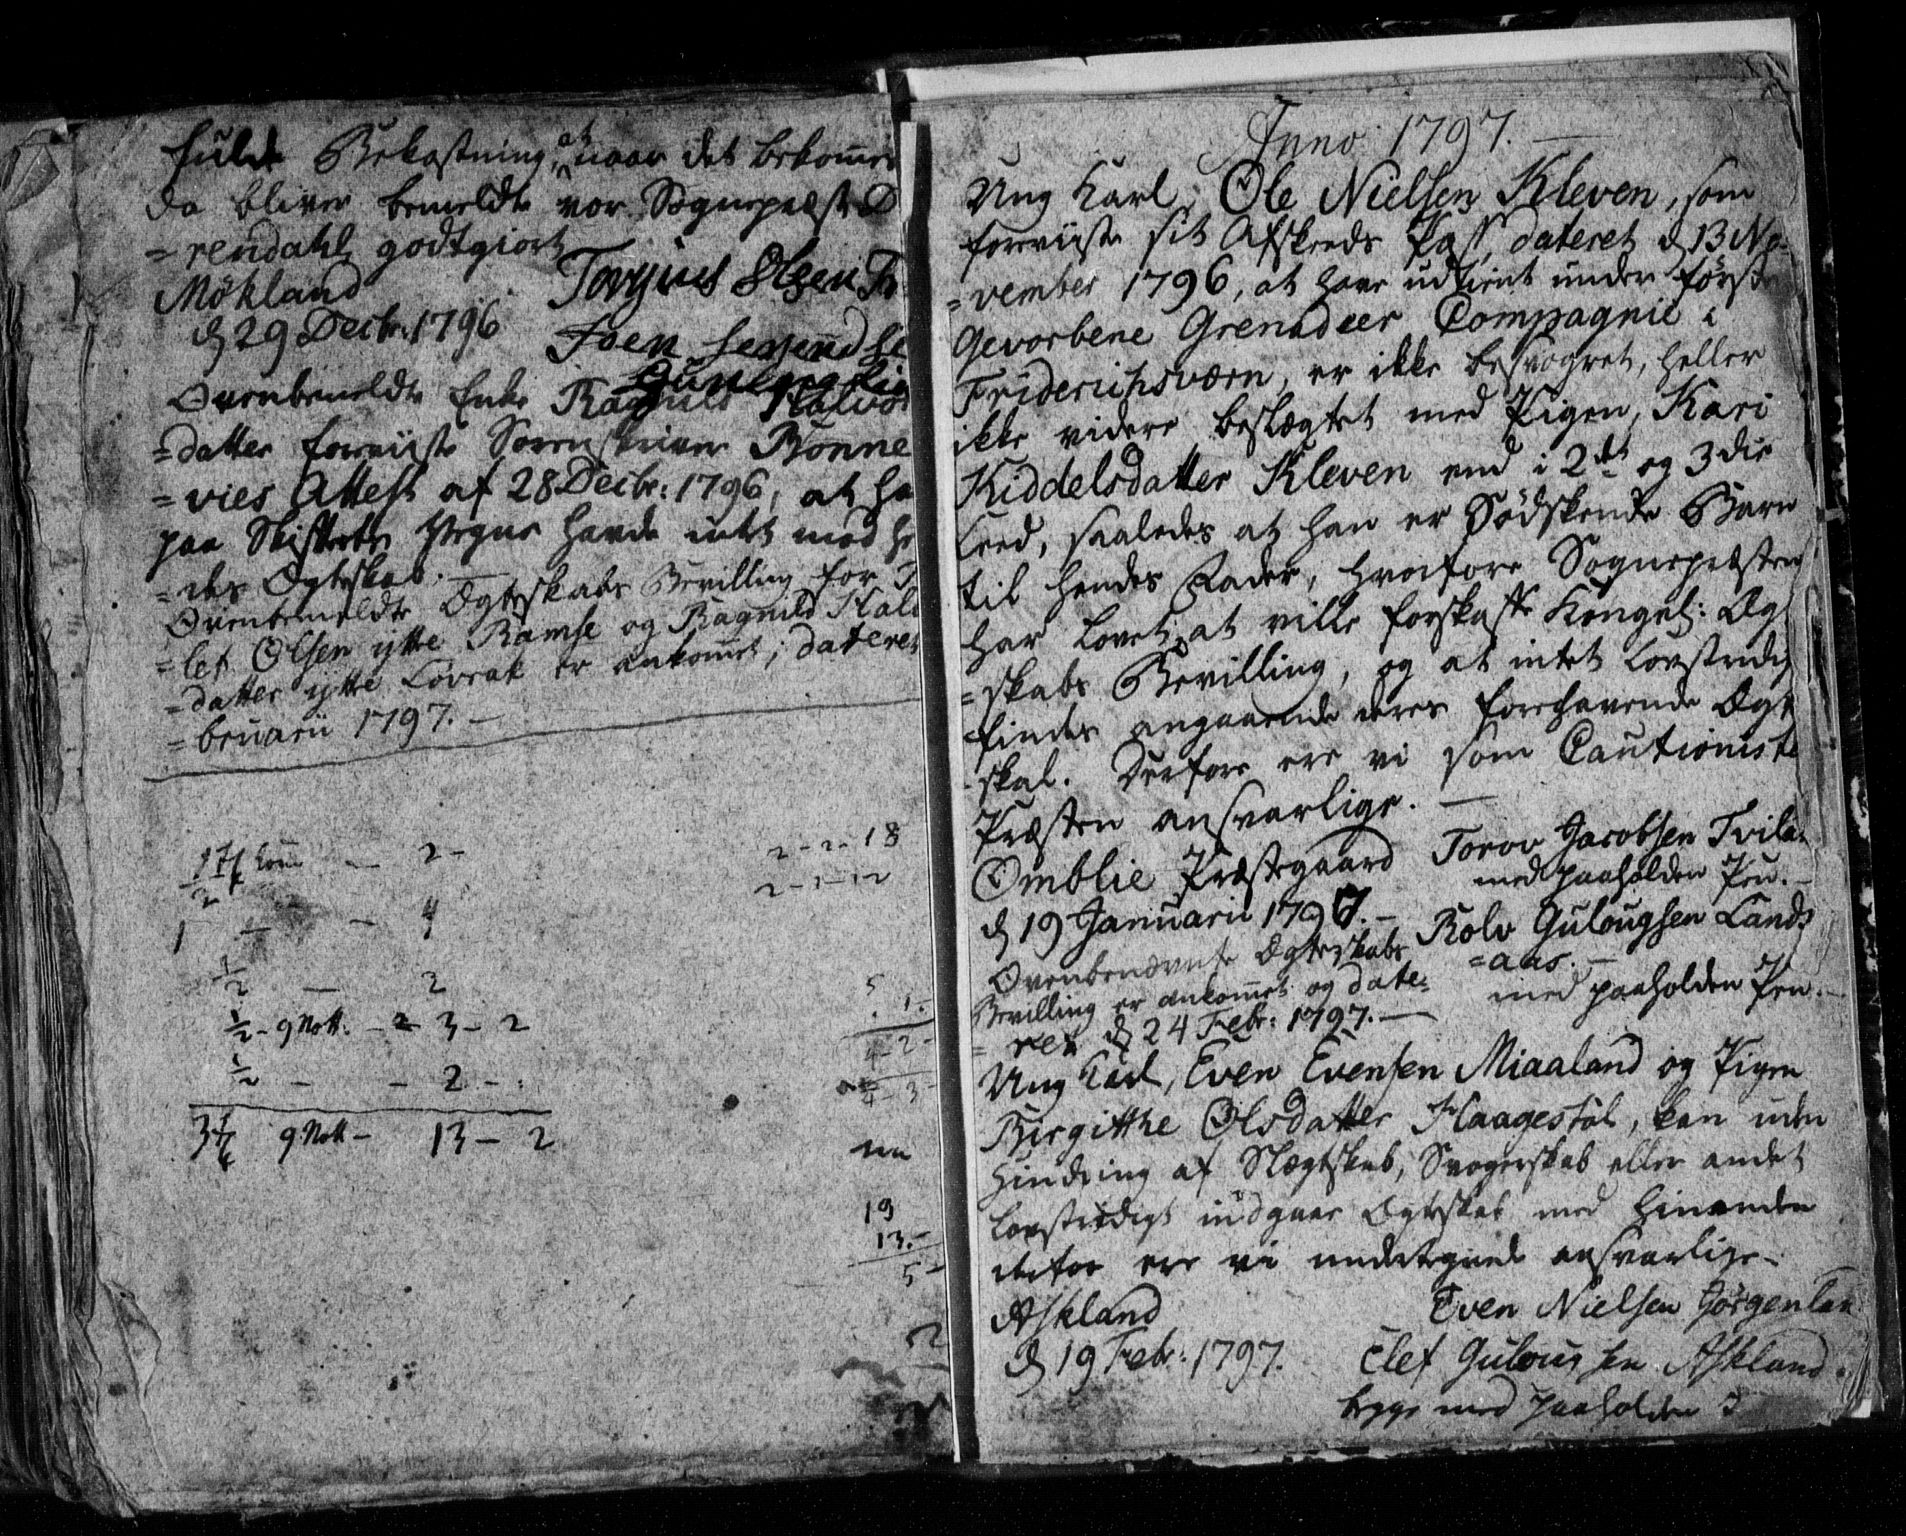 fulde Bekostning, at naar det bekommes
da bliver bemeldte vor Sognepræst D
=rendahl godtgiort
Mökland Torjus Olsen
d 29 Decbr: 1796
Ovenbemeldte Enke Ragnild Halvor
=datter foreviiste Sorenskriver Bonne
=vies Attest af 28 Decbr: 1796, at ha
paa Skifterets Vegne havde intet mod he
=des Ægteskab. —
Ovenbemeldte Ægteskabs Bevilling for
=lef Olsen ytre Ramse og Ragnild Hal
=datter ytre Lövrak er ankommet, dateret
=bruarii 1797. —
— 2 -
2 - 2 - 18
2 - 1 - 12
1 — — 4
1/2 — 2
1/2 - 9 Mott: - 3 - 2
1/2 - - 2 -
3 1/4 9 Mott - 13 - 2
19
13. -
5 -
Anno 1797. —
Ung Karl, Ole Nielsen Kleven, som
foreviiste sit Afskeeds Pass, dateret d 13 No=
=vember 1796, at have udtient under første
Gevorbene Grenadeer Compagnie i
Friderichsværn, er ikke besvogret, heller
ikke videre beslægtet med Pigen, Kari
Kiddelsdatter Kleven end i 2det og 3die
Leed, saaledes at han er Södskende Barn
til hendes Fader, hvorfore Sognepræsten
har lovet, at ville forskaffe Kongel: Ægt
=skabs Bevilling, og at intet lovstridig
findes angaaende deres forehavende Ægt
=skab. Derfore ere vi som Cautionist
Præsten ansvarlige. —
Omblie Præstegaard Torov Jacobsen Tvila
med paaholden Pen. —
d 19 Januarii 1797. — Rolv Gulougsen Lands
=aas. —
med paaholden Pen. —
Ovenbenævnte Ægteskabs
Bevilling er ankommet og date=
=ret d 24 Febr: 1797. —
Ung Karl, Even Evensen Miaaland og Pigen
Birgitthe Olsdatter Haagestöl, kan uden
Hindring af Slægtskab, Svogerskab eller andet
lovstridigt indgaae Ægteskab med hinanden
derfor ere vi undertegnede ansvarlige —
Askland Even Nielsen Görgenlan
d 19 Febr: 1797. Elef Gulousen Askland.
begge med paaholden P